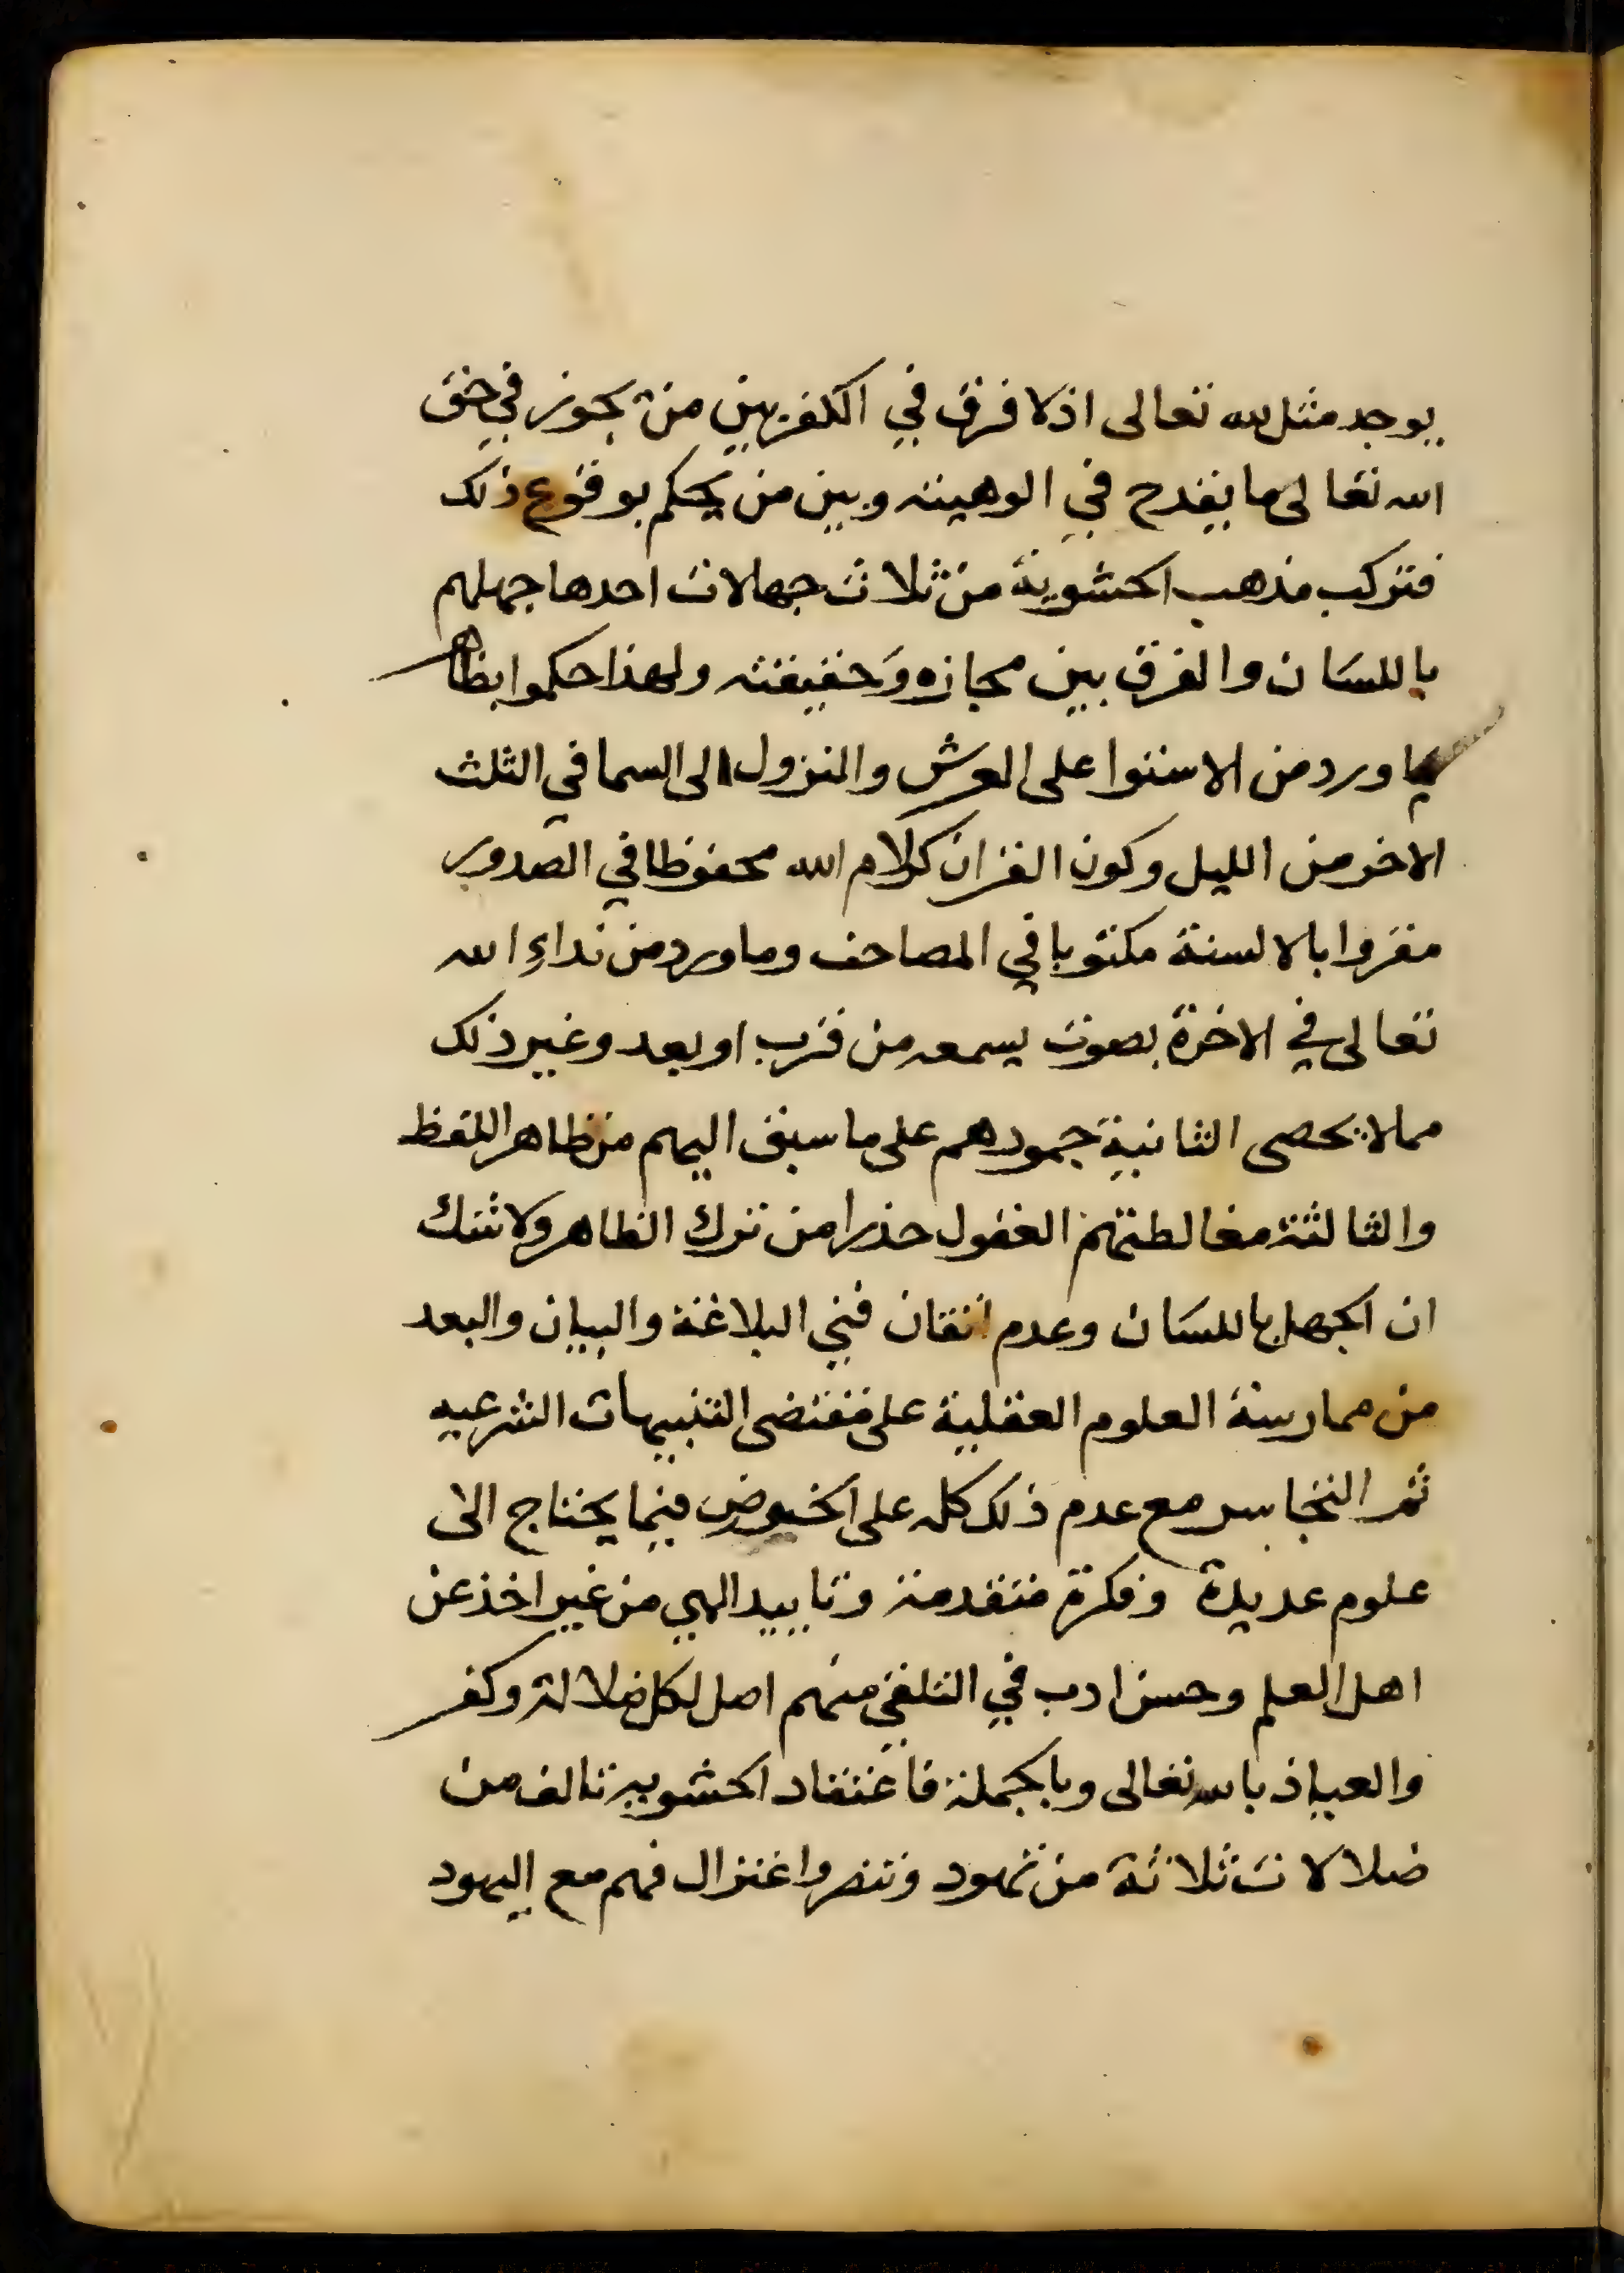 يوجد مثل لله تعالى اذلا فرق في الكفر بين من يجوز في حق
الله تعالى ما يقدح في الوهيته وبين من يحكم بوقوع ذلك
فتركب مذهب الحشوية من ثلاث جهالات احدها جهلهم
باللسان والفرق بين مجازه وحقيقته ولهذا حكموا بظاهر
ما ورد من الاستوا على العرش والنزول الى السما في الثلث
الاخر من الليل وكون القران كلام الله محفوظا في الصدور
مقروا بالالسنة مكتوبا في المصاحف وما ورد من نداءِ الله
تعالى في الاخرة بصوت يسمعه من قرب او بعد وغير ذلك
مما لا يحصى الثانية جمودهم على ما سبق اليهم من ظاهر اللفظ
والثالثة مغالطتهم العقول حذرا من ترك الظاهر ولا شك
ان الجهل باللسان وعدم اتقان فني البلاغة والبيان والبعد
من ممارسة العلوم العقلية على مقتضى التنبيهات الشرعيه
ثم التجاسر مع عدم ذلك كله على الخوض فيما يحتاج الى
علوم عديدة وفكرة متقدمة وتاييد الهي من غير اخذ عن
اهل العلم وحسن ادب في التلقي منهم اصل لكل ضلالة وكفر
والعياذ بالله تعالى وبالجملة فاعتقاد الحشوية تالف من
ضلالات ثلاثة من تهود وتنصر واعتزال فهم مع اليهود